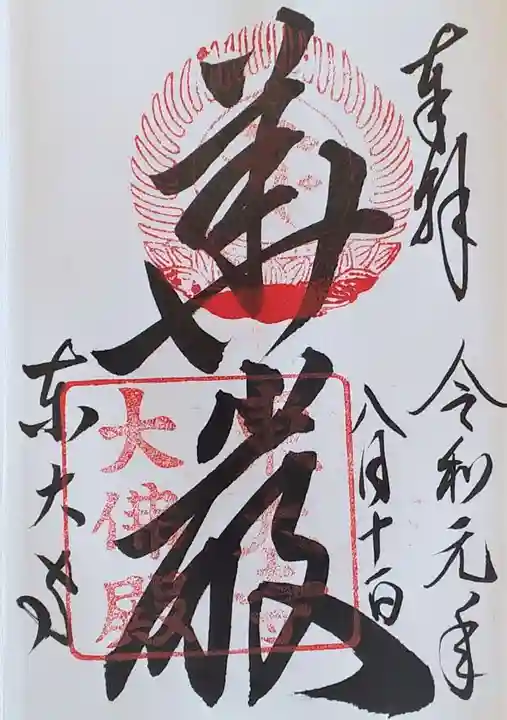 奉拝
令和元年
八月十一日
華厳
東大寺
東大寺
大佛殿